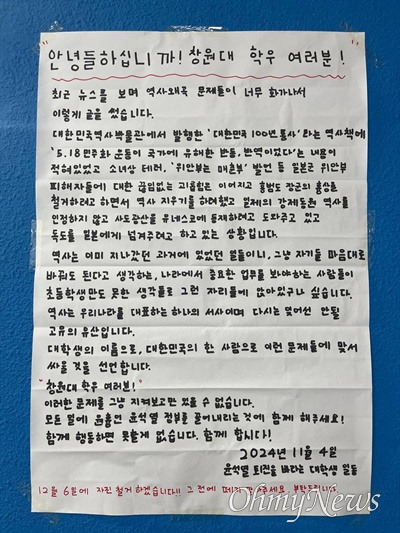 안녕들하십니까! 창원대 학우 여러분!
최근 뉴스를 보며 역사왜곡 문제들이 너무 화가나서
이렇게 글을 썼습니다.
대한민국역사박물관에서 발행한 '대한민국 100년 통사'라는 역사책에
"5.18민주화 운동이 국가에 유해한 반동, 반역이었다"는 내용이
적혀있었고 소녀상 테러, '위안부는 매춘부' 발언 등 일본군 위안부
피해자들에 대한 끊임없는 괴롭힘은 이어지고 홍범도 장군의 흉상을
철거하려고 하면서 역사 지우기를 하려했고 일제의 강제동원 역사를
인정하지 않고 사도광산을 유네스코에 등재하려고 도와주고 있고
독도를 일본에게 넘겨주려고 하고 있는 상황입니다.
역사는 이미 지나갔던 과거에 있었던 일들이니, 그냥 자기들 마음대로
바꿔도 된다고 생각하는, 나라에서 중요한 업무를 보아야하는 사람들이
초등학생만도 못한 생각들로 그런 자리들에 앉아있구나 싶습니다.
역사는 우리나라를 대표하는 하나의 서사이며 다시는 없어선 안될
고유의 유산입니다.
대학생의 이름으로, 대한민국의 한 사람으로 이런 문제들에 맞서
싸울 것을 선언합니다.
"창원대 학우 여러분!"
이러한 문제를 그냥 지켜보고만 있을 수 없습니다.
모든 일에 원흉인 윤석열 정부를 끌어내리는 것에 함께 해주세요!
함께 행동하면 못할게 없습니다. 함께 합시다!
2024년 11월 4일
윤석열 퇴진을 바라는 대학생 일동
12월 6일에 자진 철거 하겠습니다!! 그 전에 떼지 말아주세요. 부탁드립니다.
OhmyNews